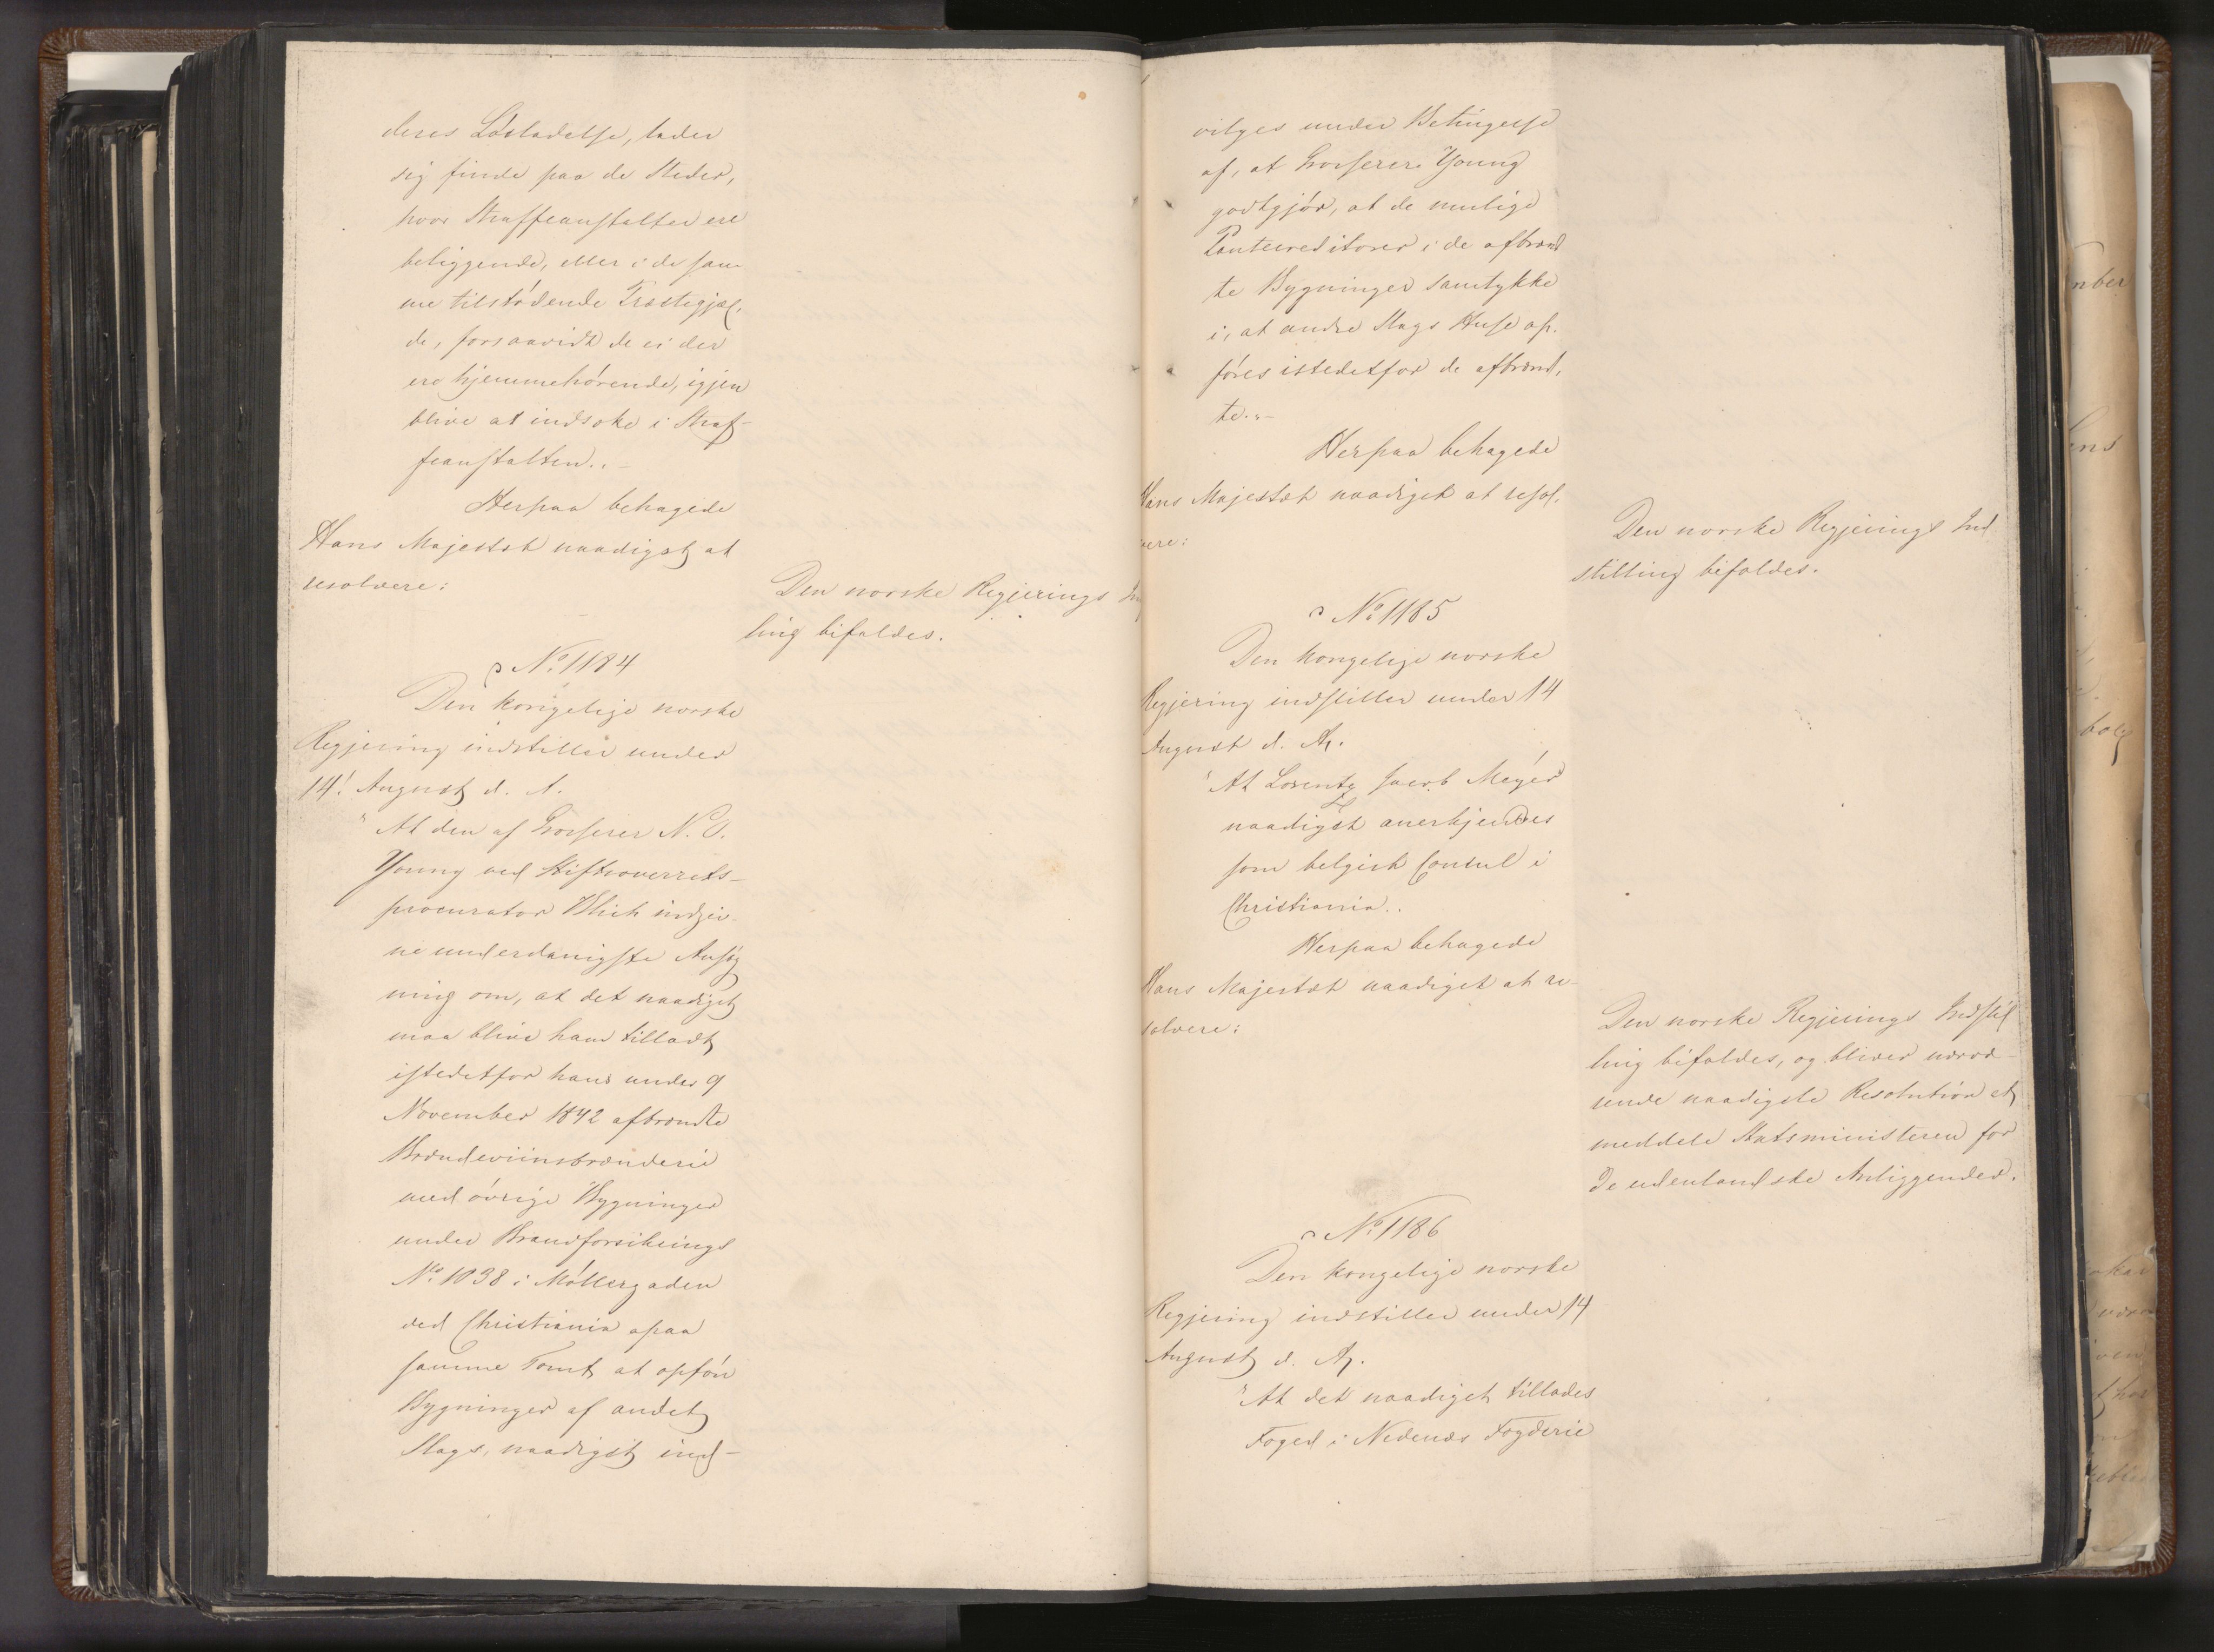 deres Løsladelse, lader
sig finde paa de Steder,
hvor Straffeanstalter ere
beliggende, eller i de sam-
me tilstødende Præstegjæl-
de, forsaavidt de ei der
ere hjemmehørende, igjen
blive at indsætte i Straf-
feanstalten."
Herpaa behagede
Hans Majestæt naadigst at
resolvere:
Den norske Regjerings
ling bifaldes.
No. 1184
Den kongelige norske
Regjering indstiller under
14. August d. A.
"At den af Grosserer N. O.
Young ved Stiftsoverrets-
procurator Blich indgiv-
ne underdanigste Ansøg
ning om, at det naadigst
maa blive ham tilladt
istedetfor hans under 9
November 1842 afbrændte
Brændeviinsbrænderie
med øvrige Bygninger
under Brandforsikrings
No. 1038 i Møllergaden
ved Christiania opaa
samme Tomt at opføre
Bygninger af andet
Slags, naadigst ind-
vilges under Betingelse
af, at Grosserer Young
godtgjør, at de mulige
Pantecreditorer i de afbrænd
te Bygninger samtykke
i, at andre Slags Huse op-
føres istedetfor de afbrænd-
te."
Herpaa behagede
Hans Majestæt naadigst at resol-
vere:
Den norske Regjerings Ind
stilling bifaldes.
No. 1185
Den kongelige norske
Regjering indstiller under 14
August d. A.
"At Lorentz Jacob Meyer
naadigst anerkjendes
som belgisk Consul i
Christiania."
Herpaa behagede
Hans Majestæt naadigst at re-
solvere:
Den norske Regjerings Indstil
ling bifaldes, og bliver nærvæ-
rende naadigste Resolution at
meddele Statsministeren for
de udenlandske Anliggender.
No. 1186
Den kongelige norske
Regjering indstiller under 14
August d. A.
"At det naadigst tillades
Foged i Nedenæs Fogderie